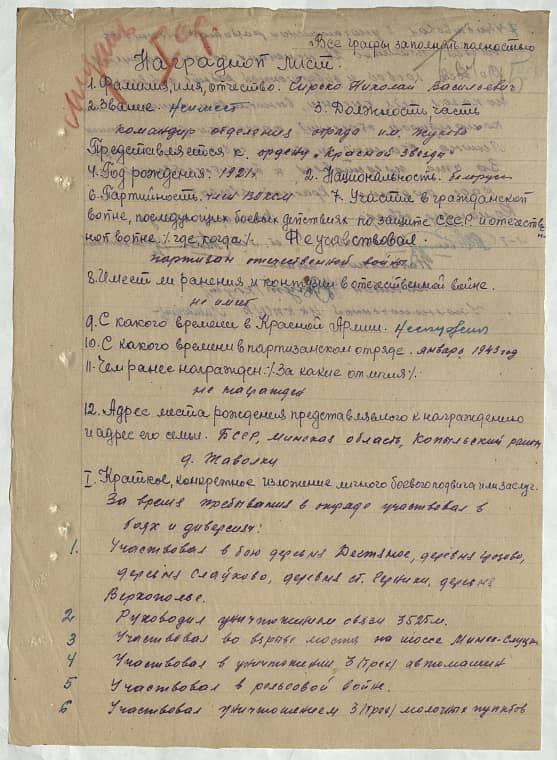 Все графы заполнять полностью
Наградной лист.
1. Фамилия, имя, отчество. Сирско Николай Васильевич
2. Звание. Не имеет 3. Должность, часть
командир отделения отряда им. Жукова
Представляется к. ордену „Красной Звезда"
4. Год рождения. 1921г 2. Национальность. белорус
6. Партийность. член ВЛКСМ 7. Участие в гражданской
войне, последующих боевых действиях по защите СССР и отечестве
ной войне. /. где, когда /. Не участвовал.
партизан отечественной войны
8. Имеет ли ранения и контузии в отечественной войне.
не имеет
9. С какого времени в Красной Армии. Не служил
10. С какого времени в партизанском отряде. январь 1943 год
11. Чем ранее награжден. /. За какие отличия /.
не награжден
12. Адрес места рождения представляемого к награждению
и адрес его семьи. БССР, Минская область, Копыльский район
д. Жаволки
I. Краткое, конкретное изложение личного боевого подвига или заслуг.
За время пребывания в отряде участвовал в
боях и диверсиях:
1. Участвовал в бою деревня деревня
деревня деревня ст. деревня
Верхополье.
2 Руководил уничтожением связи 3525м.
3 Участвовал во взрыве моста на шоссе Минск-Слуцк
4 Участвовал в уничтожении 3 (трех) автомашин
5 Участвовал в рельсовой войне.
6 Участвовал уничтожением 3 (трех) молочных пунктов